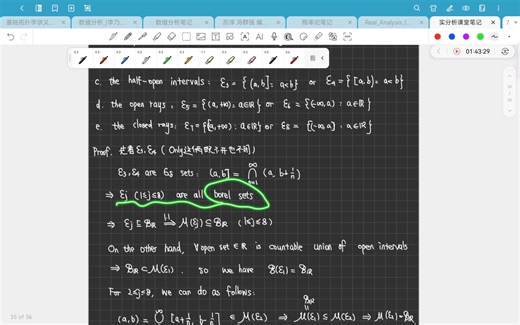 基础拓扑学讲义...
数值分析_(李乃...
数值分析笔记
苏淳 冯群强 编...
概率论笔记
Real_Analysis_(...
实分析课堂笔记
01:43:29
c. the half-open intervals: ε₃ = {(a,b]: a<b} or ε₄ = {[a,b): a<b}
d. the open rays: ε₅ = {(a,+∞): a∈ℝ} or ε₆ = {(-∞,a): a∈ℝ}
e. the closed rays: ε₇ = {[a,+∞): a∈ℝ} or ε₈ = {(-∞,a]: a∈ℝ}
Proof. ε₃,ε₄ (Only
ε₃,ε₄ are Gδ sets: (a,b] = ⋂_{n=1}^{∞} (a, b+1/n)
⇒ εj (1≤j≤8) are all borel sets
⇒ εj ⊆ 𝓑ℝ ⇒ M(εj) ⊆ 𝓑ℝ (1≤j≤8)
On the other hand, ∀open set ∈ ℝ is countable union of open intervals
⇒ 𝓑ℝ ⊂ M(ε₁). so we have 𝓑(ε₁) = 𝓑ℝ
For 2≤j≤8, we can do as follows:
(a,b) = ⋃ [a+1/n, b-1/n] ∈ M(ε₂) ⇒ M(ε₁) ≤ M(ε₂) ⇒ M(ε₂)=𝓑ℝ